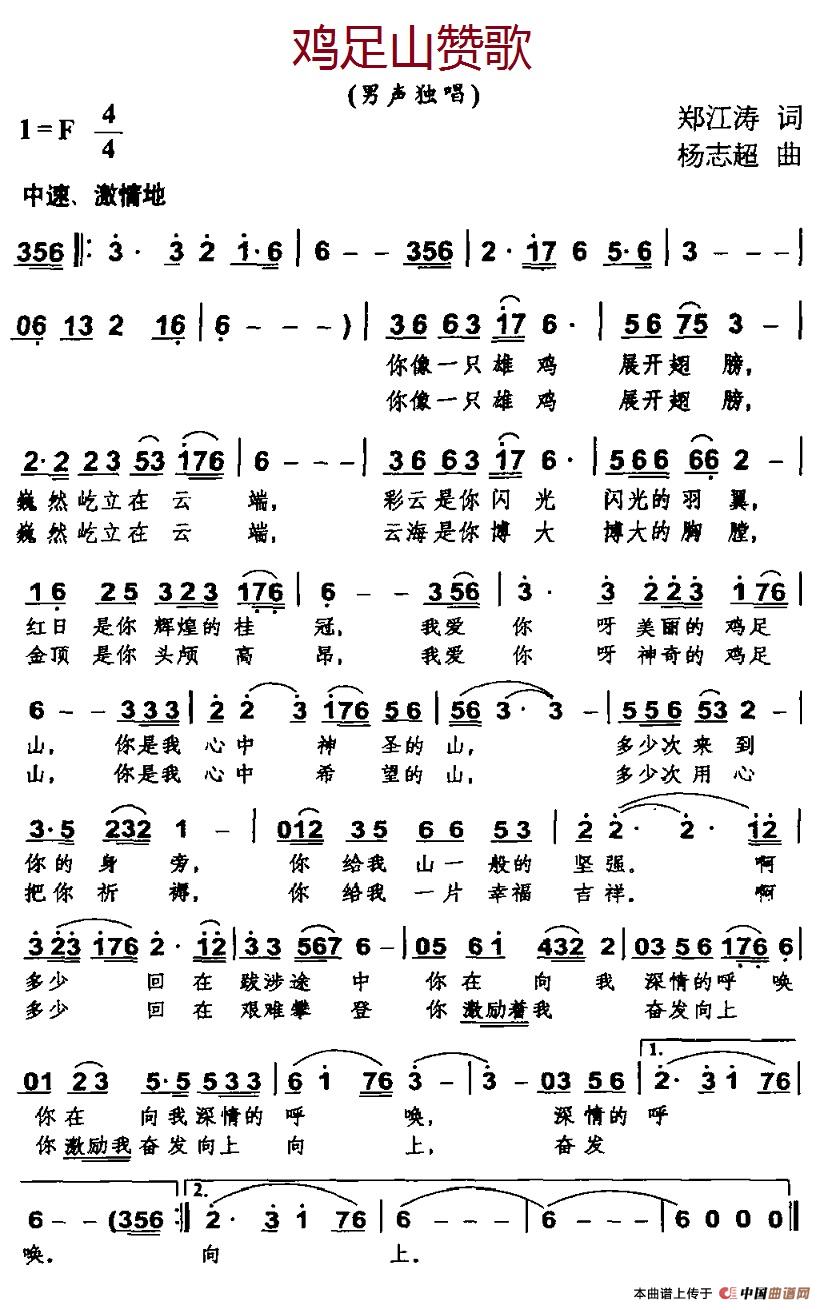 鸡足山赞歌
(男声独唱)
1=F 4/4
郑江涛 词
杨志超 曲
中速、激情地
356 ‖: 3· 3 2 1·6 | 6 - - 356 | 2· 17 6 5·6 | 3 - - - |
06 13 2 16 | 6 - - - ) | 36 63 17 6· | 56 75 3 - |
你像一只雄 鸡 展开翅 膀,
你像一只雄 鸡 展开翅 膀,
2·2 23 53 176 | 6 - - - | 36 63 17 6· | 566 66 2 - |
巍然屹立在云 端, 彩云是你闪 光 闪光的羽 翼,
巍然屹立在云 端, 云海是你博 大 博大的胸 膛,
16 25 323 176 | 6 - - 356 | 3· 3 223 176 |
红日 是你 辉煌的桂 冠, 我爱 你 呀 美丽的 鸡足
金顶 是你 头颅 高 昂, 我爱 你 呀 神奇的 鸡足
6 - - 333 | 2 2 3 176 56 | 56 3· 3 - | 556 53 2 - |
山, 你是我 心中 神 圣的 山, 多少次 来 到
山, 你是我 心中 希 望的 山, 多少次 用 心
3·5 232 1 - | 012 35 66 53 | 2 2· 2· 12 |
你的 身 旁, 你 给我 山一 般的 坚强. 啊
把你 祈 祷, 你 给我 一片 幸福 吉祥. 啊
3 23 176 2· 12 | 33 567 6 - | 05 61 432 2 | 03 56 176 6 |
多少 回在 跋涉途 中 你在 向 我 深情的呼 唤
多少 回在 艰难攀 登 你 激励着我 奋发向上
01 23 5·5 533 | 6 1 76 3 - | 3 - 03 56 | 1. 2· 3 1 76 |
你在 向我深情的 呼 唤, 深情的 呼
你激励我奋发向上 向 上, 奋发
6 - - (356 :‖ 2. 2· 3 1 76 | 6 - - 6 - - | 6 0 0 0 ‖
唤. 向 上.
本曲谱上传于 中国曲谱网